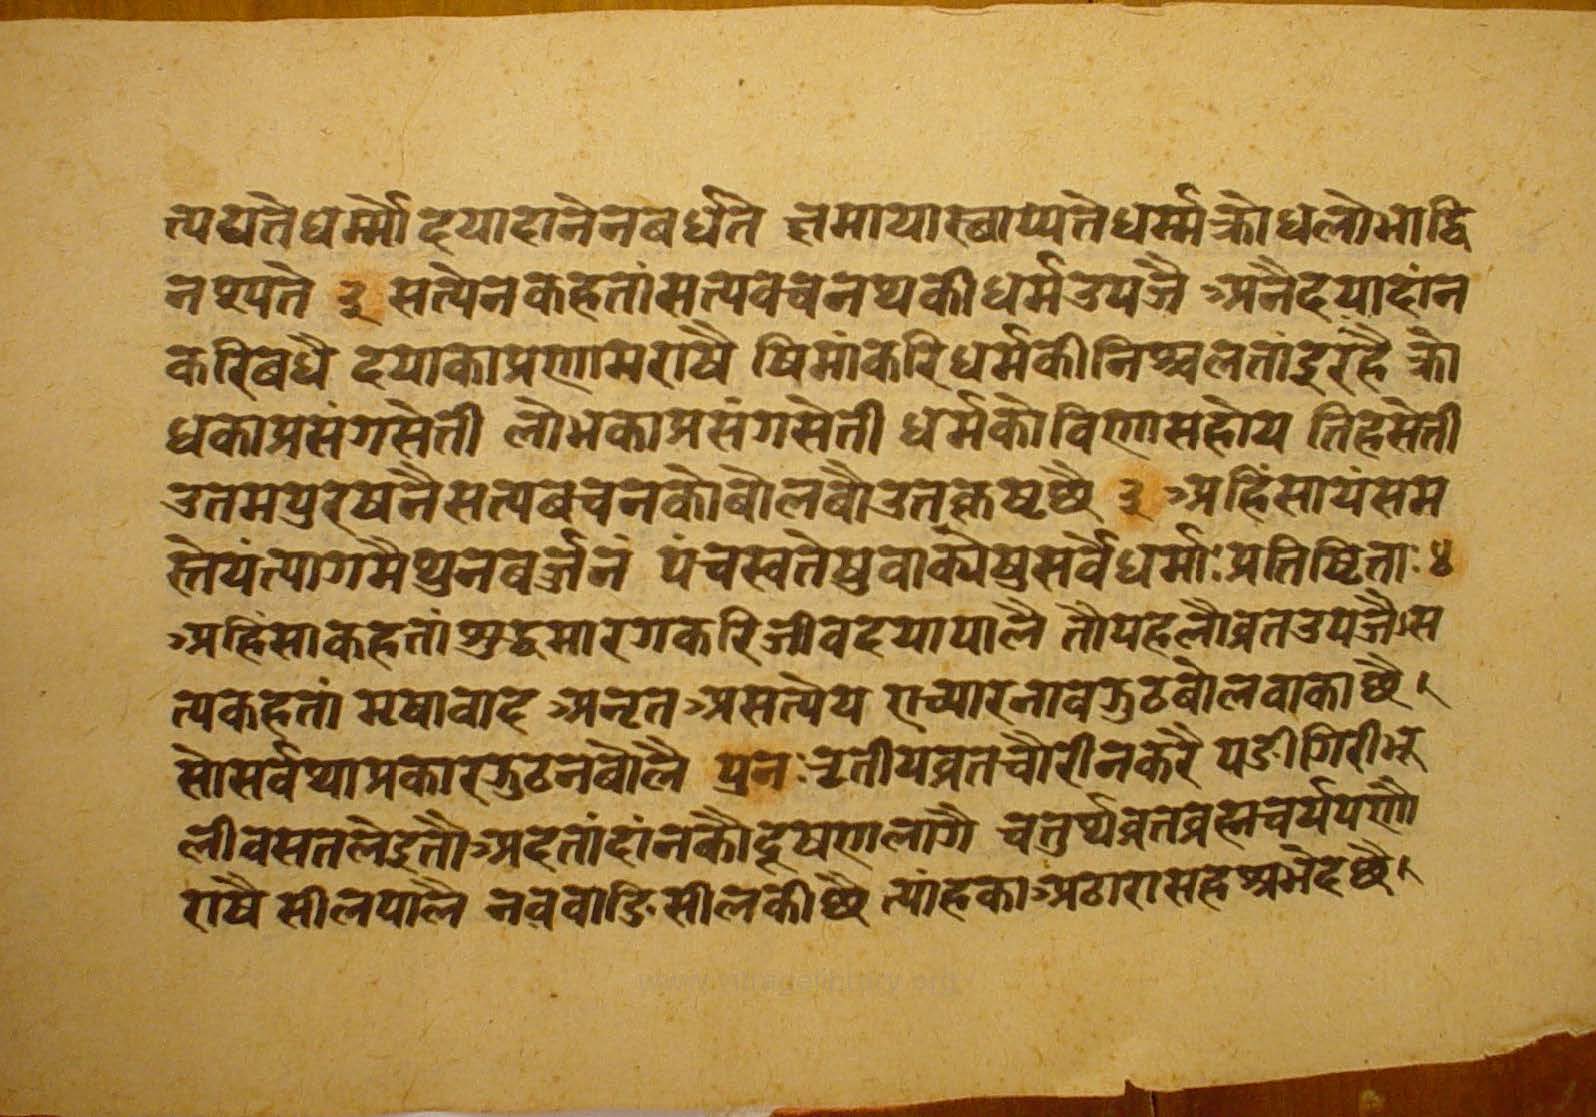 त्पद्यतेधर्म्मोदयादानेनबर्धते क्षमायास्थाप्यतेधर्म्मक्रोधलोभाद्वि
नश्यते ३ सत्येनकहतांसत्यवचनथकीधर्मउपजै अनैदयादांन
करिबधै दयाकाप्रणामराषै षिमांकरिधर्मकीनिश्चलतांइरहै क्रो
धकाप्रसंगसेती लोभकाप्रसंगसेती धर्मकोविणासहोय तिहसेती
उतमपुरषनैसत्यबचनकोबोलबौउतकृष्टछै ३ अहिंसायंसम
स्तेयंत्यागमैथुनबर्ज्जनं पंचस्वतेषुवाक्येषुसर्वेधर्माःप्रतिष्टिताः ४
अहिंसाकहतांशुद्धमारगकरिजीवदयापालै तौपहलौव्रतउपजै स
त्यकहतां मृषावाद अनृत असत्येय च्यारनावझुठबोलवाकाछै।
सोसर्वथाप्रकारझुठनबोलै पुनःतृतीयव्रतचौरीनकरै पडीगिरीभू
लीवसतलेइतौअदतांदांनकौदूषणलागै चतुर्थव्रतब्रह्मचर्यपणौ
राषै सीलपालै नववाडिसीलकीछै त्यांहकाअठारासहश्रभेदछै।